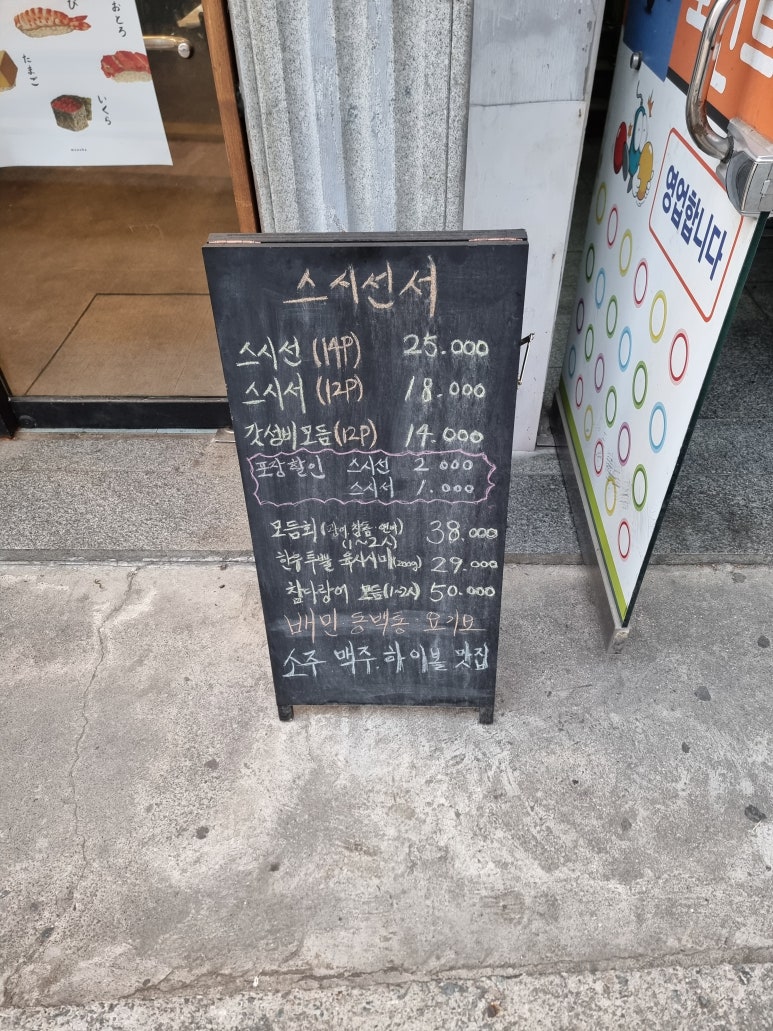 おとろ
び
たまご
いくら
영업합니다
스시선서
스시선 (14P) 25.000
스시서 (12P) 18.000
갓성비모듬(12P) 14.000
포장할인 스시선 2 000
스시서 1.000
모듬회(광어 참돔·연어) 38.000
(1~2人)
한우투쁠 육사시미(200g) 29.000
참다랑어 모듬(1~2人) 50.000
배민 동백통·요기요
소주 맥주.하이볼 맛집